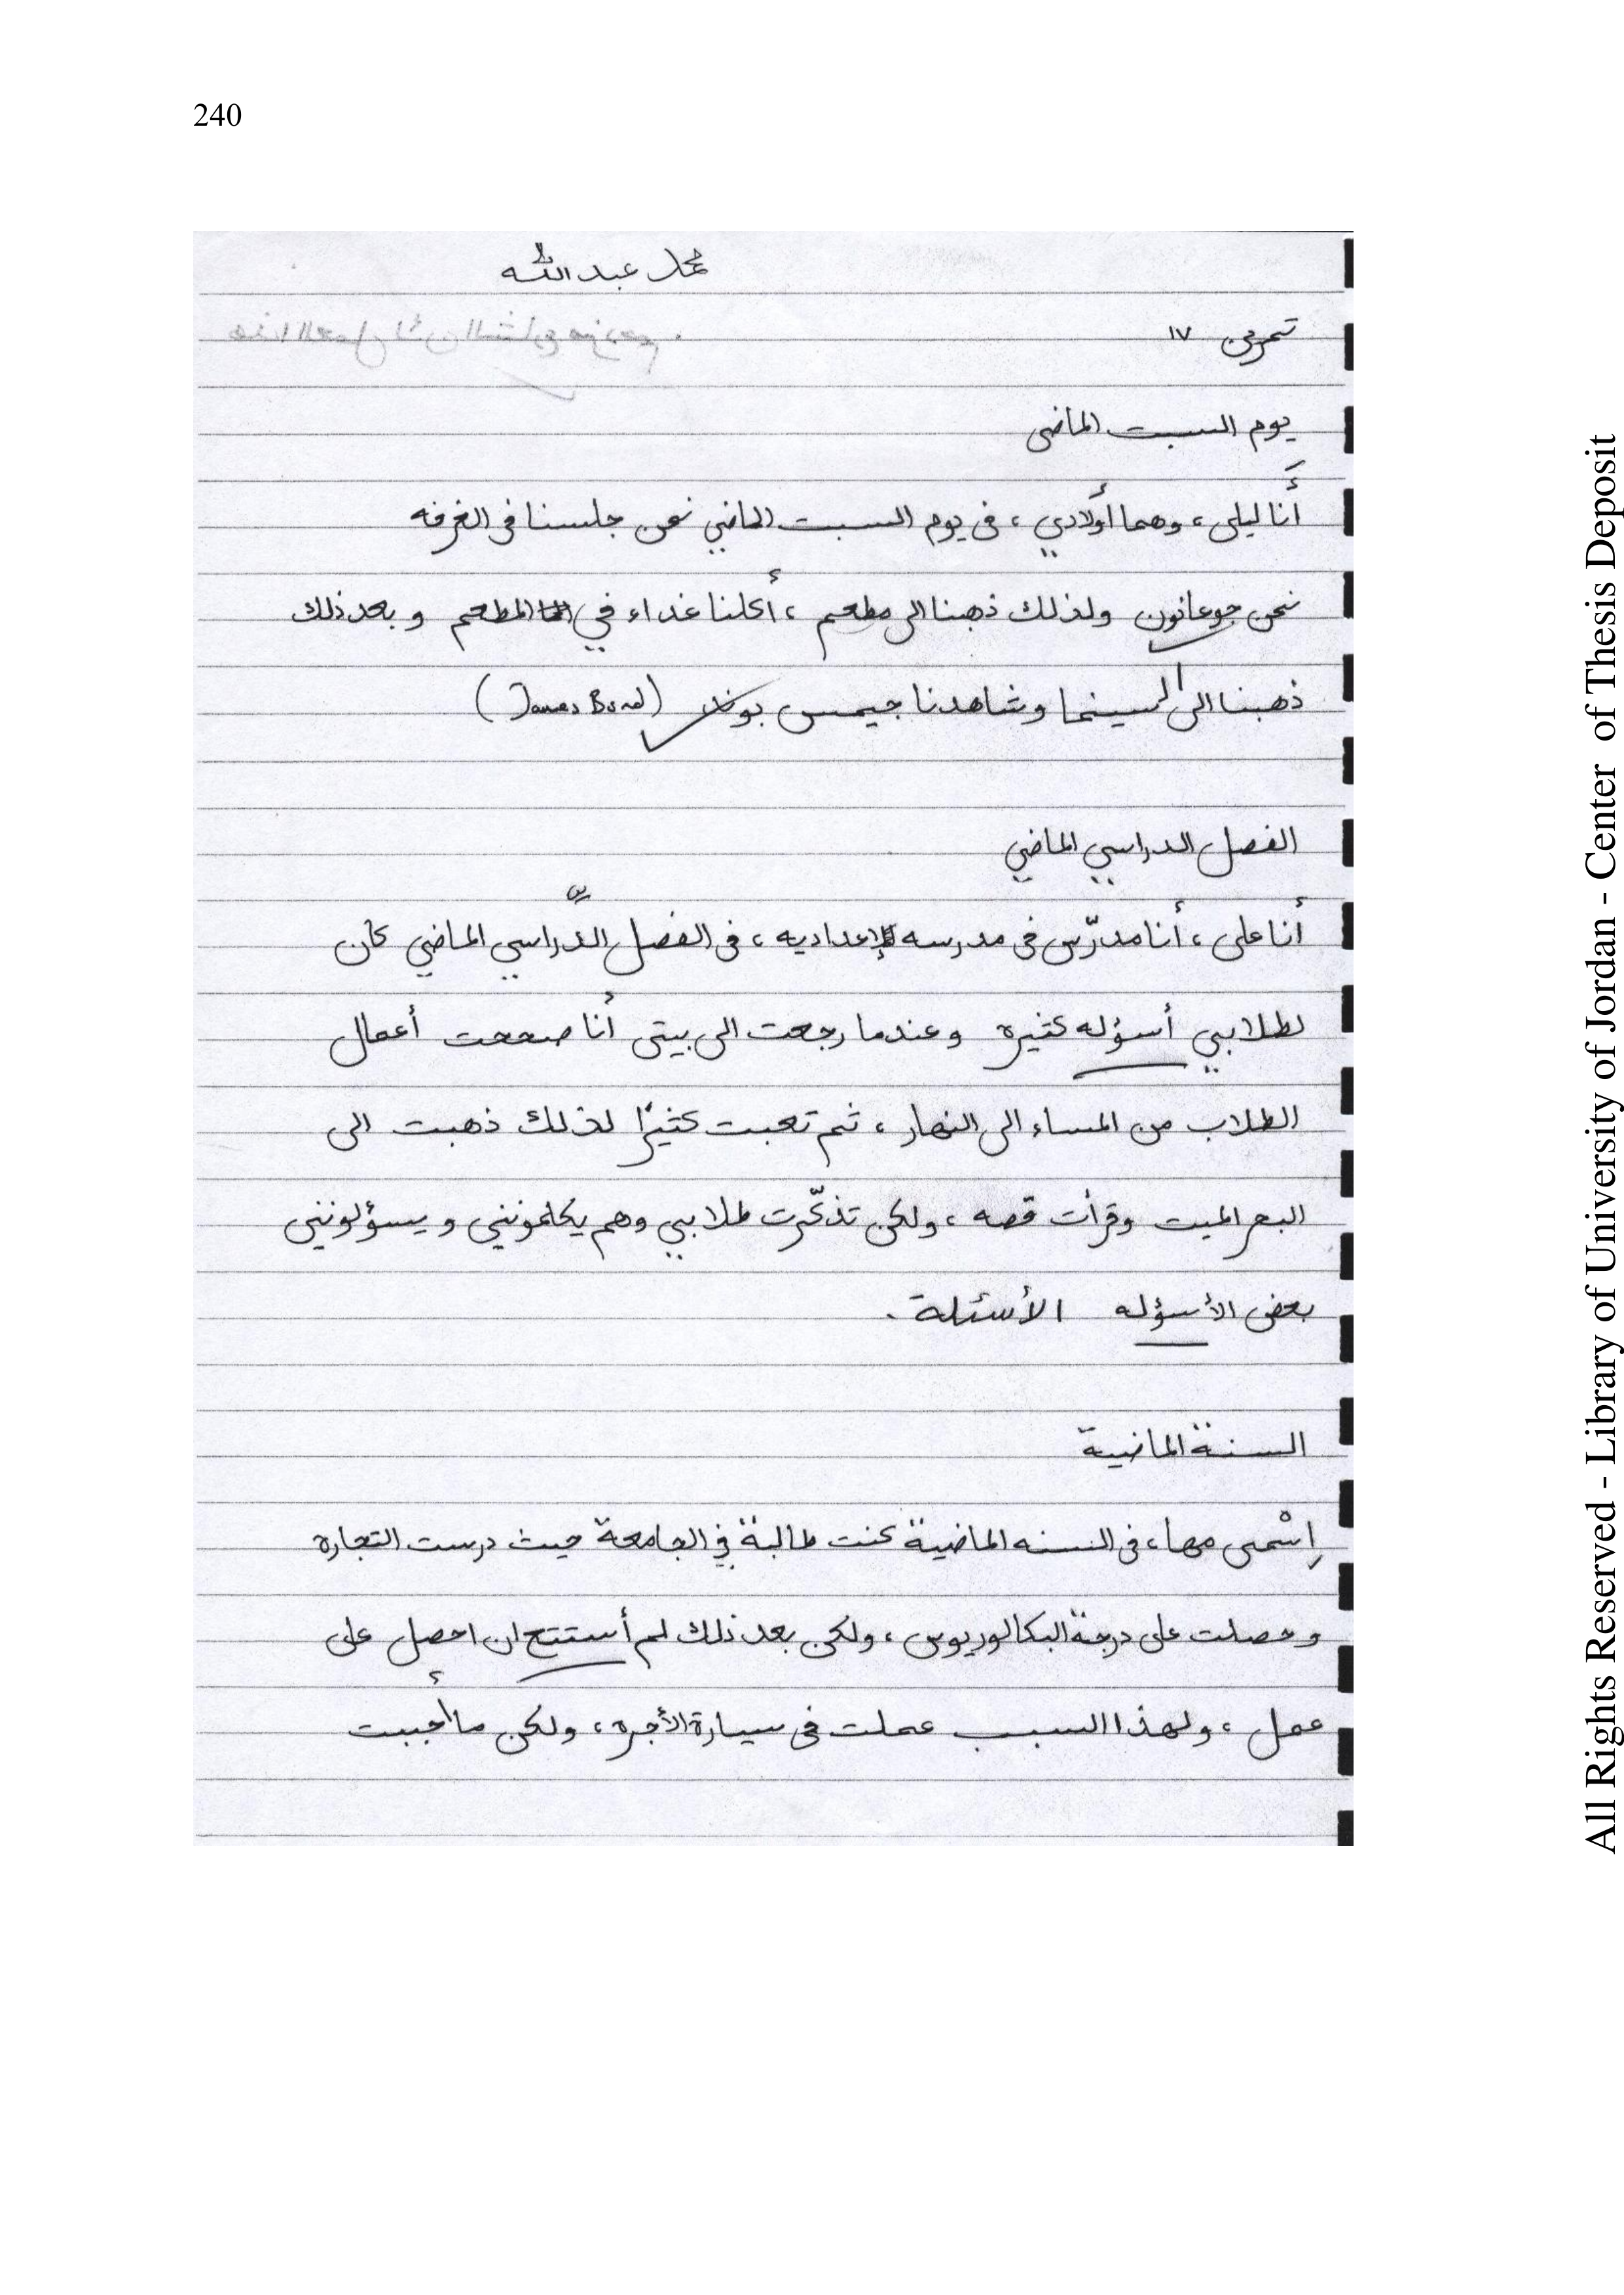 240
محمد عبد الله
تمرين ١٧
يوم السبت الماضى
أَنا ليلى، وهما أولادي، فى يوم السبت الماضي نحن جلسنا فى الغرفه
نحن جوعانون ولذلك ذهبنا الى مطعم، أكلنا غداء في المطعم و بعد ذلك
ذهبنا الى السينما وشاهدنا جيمس بوند (James Bond)
الفصل الدراسي الماضي
أنا على، أنا مدرّس فى مدرسه الإعداديه، فى الفصل الدّراسي الماضي كان
لطلابي أسؤله كثيره وعندما رجعت الى بيتى أنا صححت أعمال
الطلاب من المساء الى النهار، ثم تعبت كثيرًا لذلك ذهبت الى
البحر الميت وقرأت قصه، ولكن تذكّرت طلابي وهم يكلمونني و يسؤلونني
بعض الأسؤله الأسئلة.
السنة الماضية
اِسْمى مها، فى السنه الماضية كنت طالبة في الجامعة حيث درست التجاره
و حصلت على درجة البكالوريوس، ولكن بعد ذلك لم أستتح ان احصل على
عمل، ولهذا السبب عملت فى سيارة الأجره، ولكن ما أحببت
All Rights Reserved - Library of University of Jordan - Center of Thesis Deposit